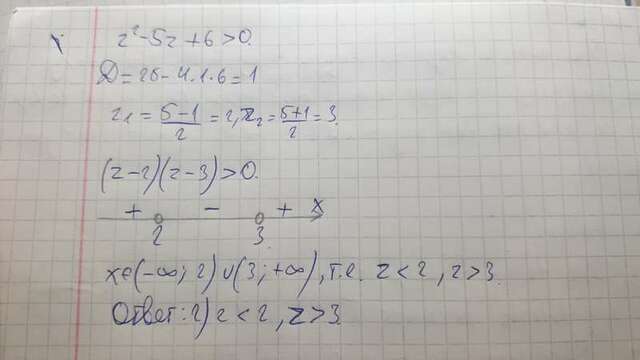 z²-5z+6>0.
D=25-4·1·6=1
z₁=(5-1)/2=2, z₂=(5+1)/2=3.
(z-2)(z-3)>0.
+ - + x
2 3
x∈(-∞; 2)∪(3; +∞), т.е. z<2, z>3.
Ответ: 2) z<2, z>3.